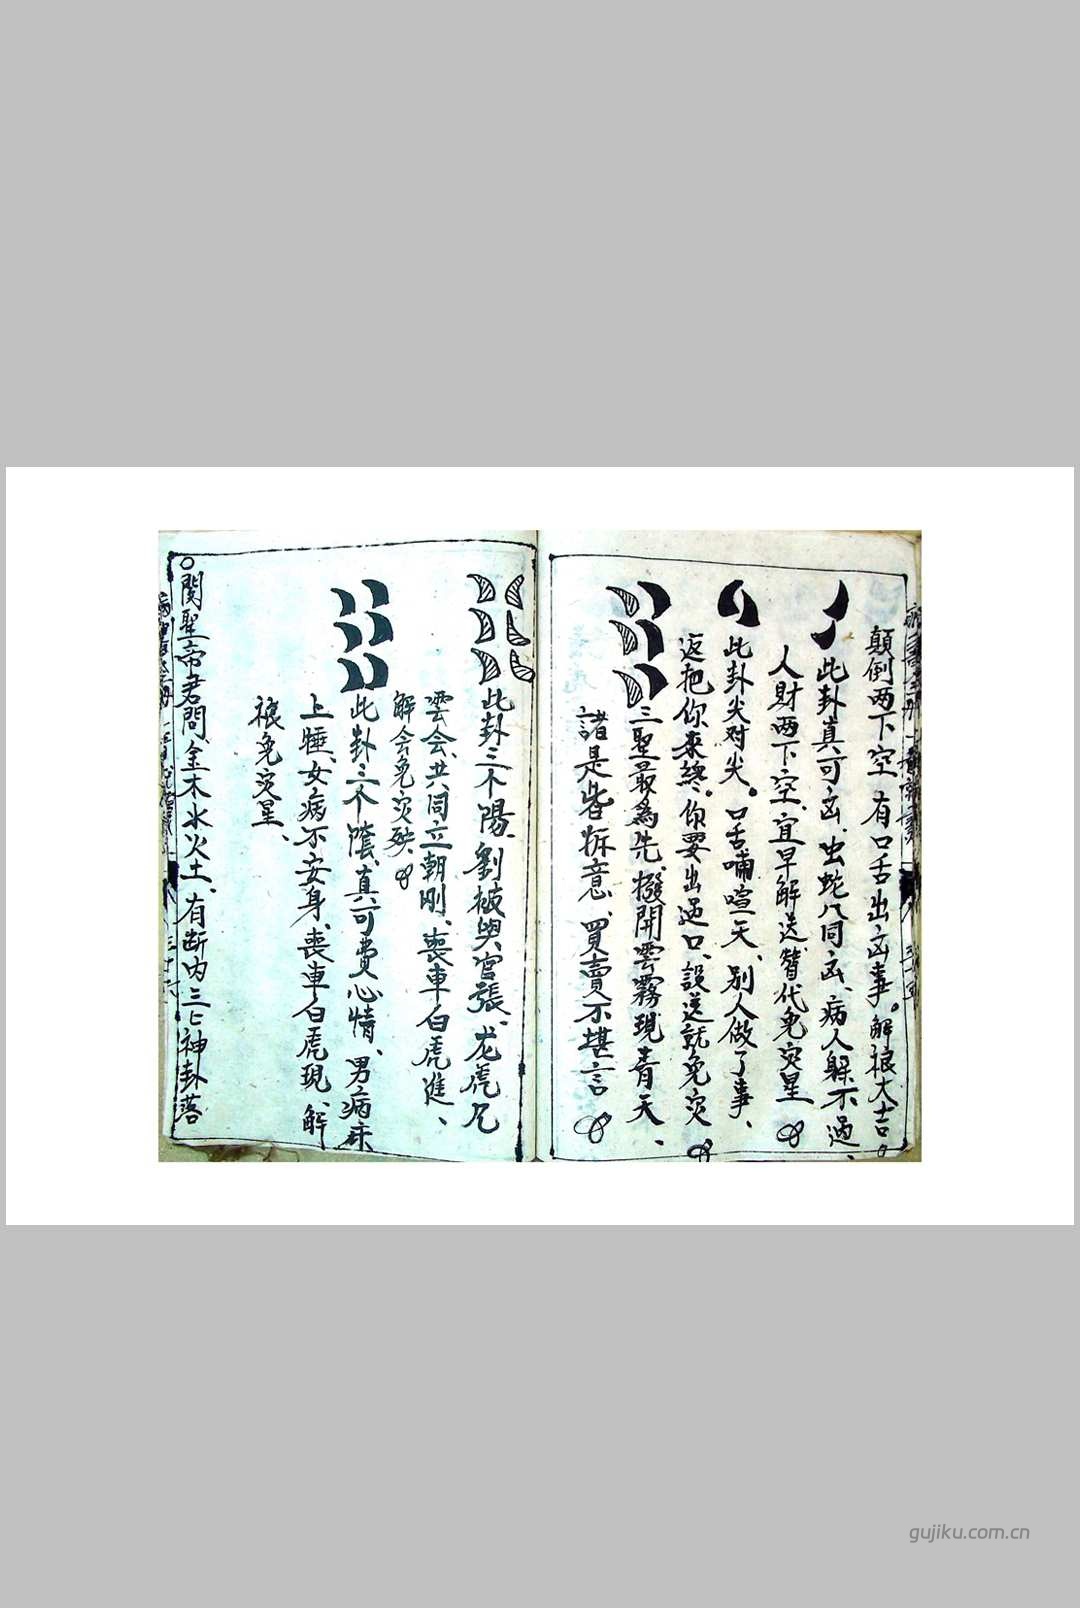 顛倒两下空有口舌出凶事。解禳大吉。
此卦真可凶、出蛇八同凶、病人躲不過、
人財两下空、宜早解送、替代免灾星
此卦尖对尖。口舌哺喧天、别人做了事、
返把你來終。你要出過口、設送就免灾
三聖最為先、撥開雲霧現青天、
諸是皆拆意、買賣不堪言
此卦三个陽、劉被與官張、龙虎凡
雲会、共同立朝刚、喪車白虎進、
解会免灾殃、
此卦三个陰、真可費心情、男病床
上睡、女病不安身、喪車白虎現、解
禳免灾星、
○関聖帝君問、金木水火土、有断内三亡神卦落
三十六
三十五
gujiku.com.cn